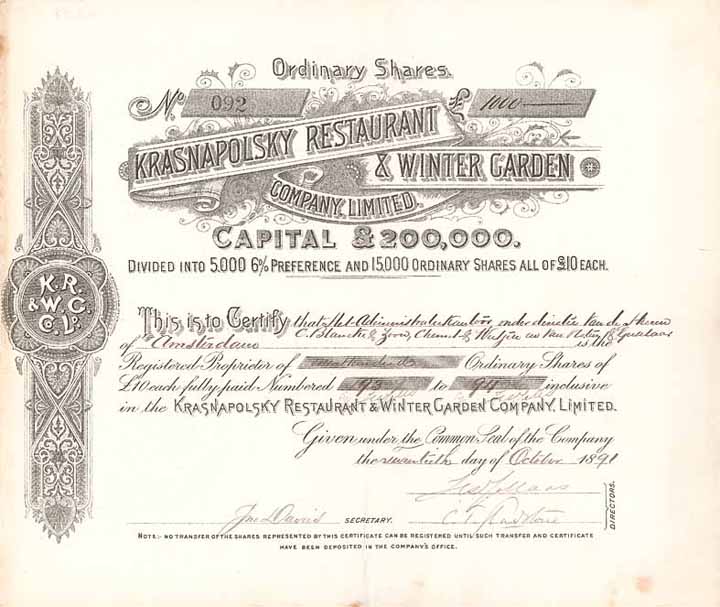 Ordinary Shares.
No 092 £ 1000
KRASNAPOLSKY RESTAURANT
& WINTER GARDEN
COMPANY, LIMITED.
CAPITAL £200,000.
DIVIDED INTO 5.000 6% PREFERENCE AND 15,000 ORDINARY SHARES ALL OF £10 EACH.
K.R.
& W.G.
C. Ld.
This is to Certify that Het Administratiekantoor, onder directie van de Heeren
of Amsterdam is the
Registered Proprietor of Ordinary Shares of
£10 each fully paid Numbered 93 to 94 inclusive
in the KRASNAPOLSKY RESTAURANT & WINTER GARDEN COMPANY, LIMITED.
Given under the Common Seal of the Company
the day of October 1891
DIRECTORS.
Davis SECRETARY.
NOTE:- NO TRANSFER OF THE SHARES REPRESENTED BY THIS CERTIFICATE CAN BE REGISTERED UNTIL SUCH TRANSFER AND CERTIFICATE
HAVE BEEN DEPOSITED IN THE COMPANY'S OFFICE.